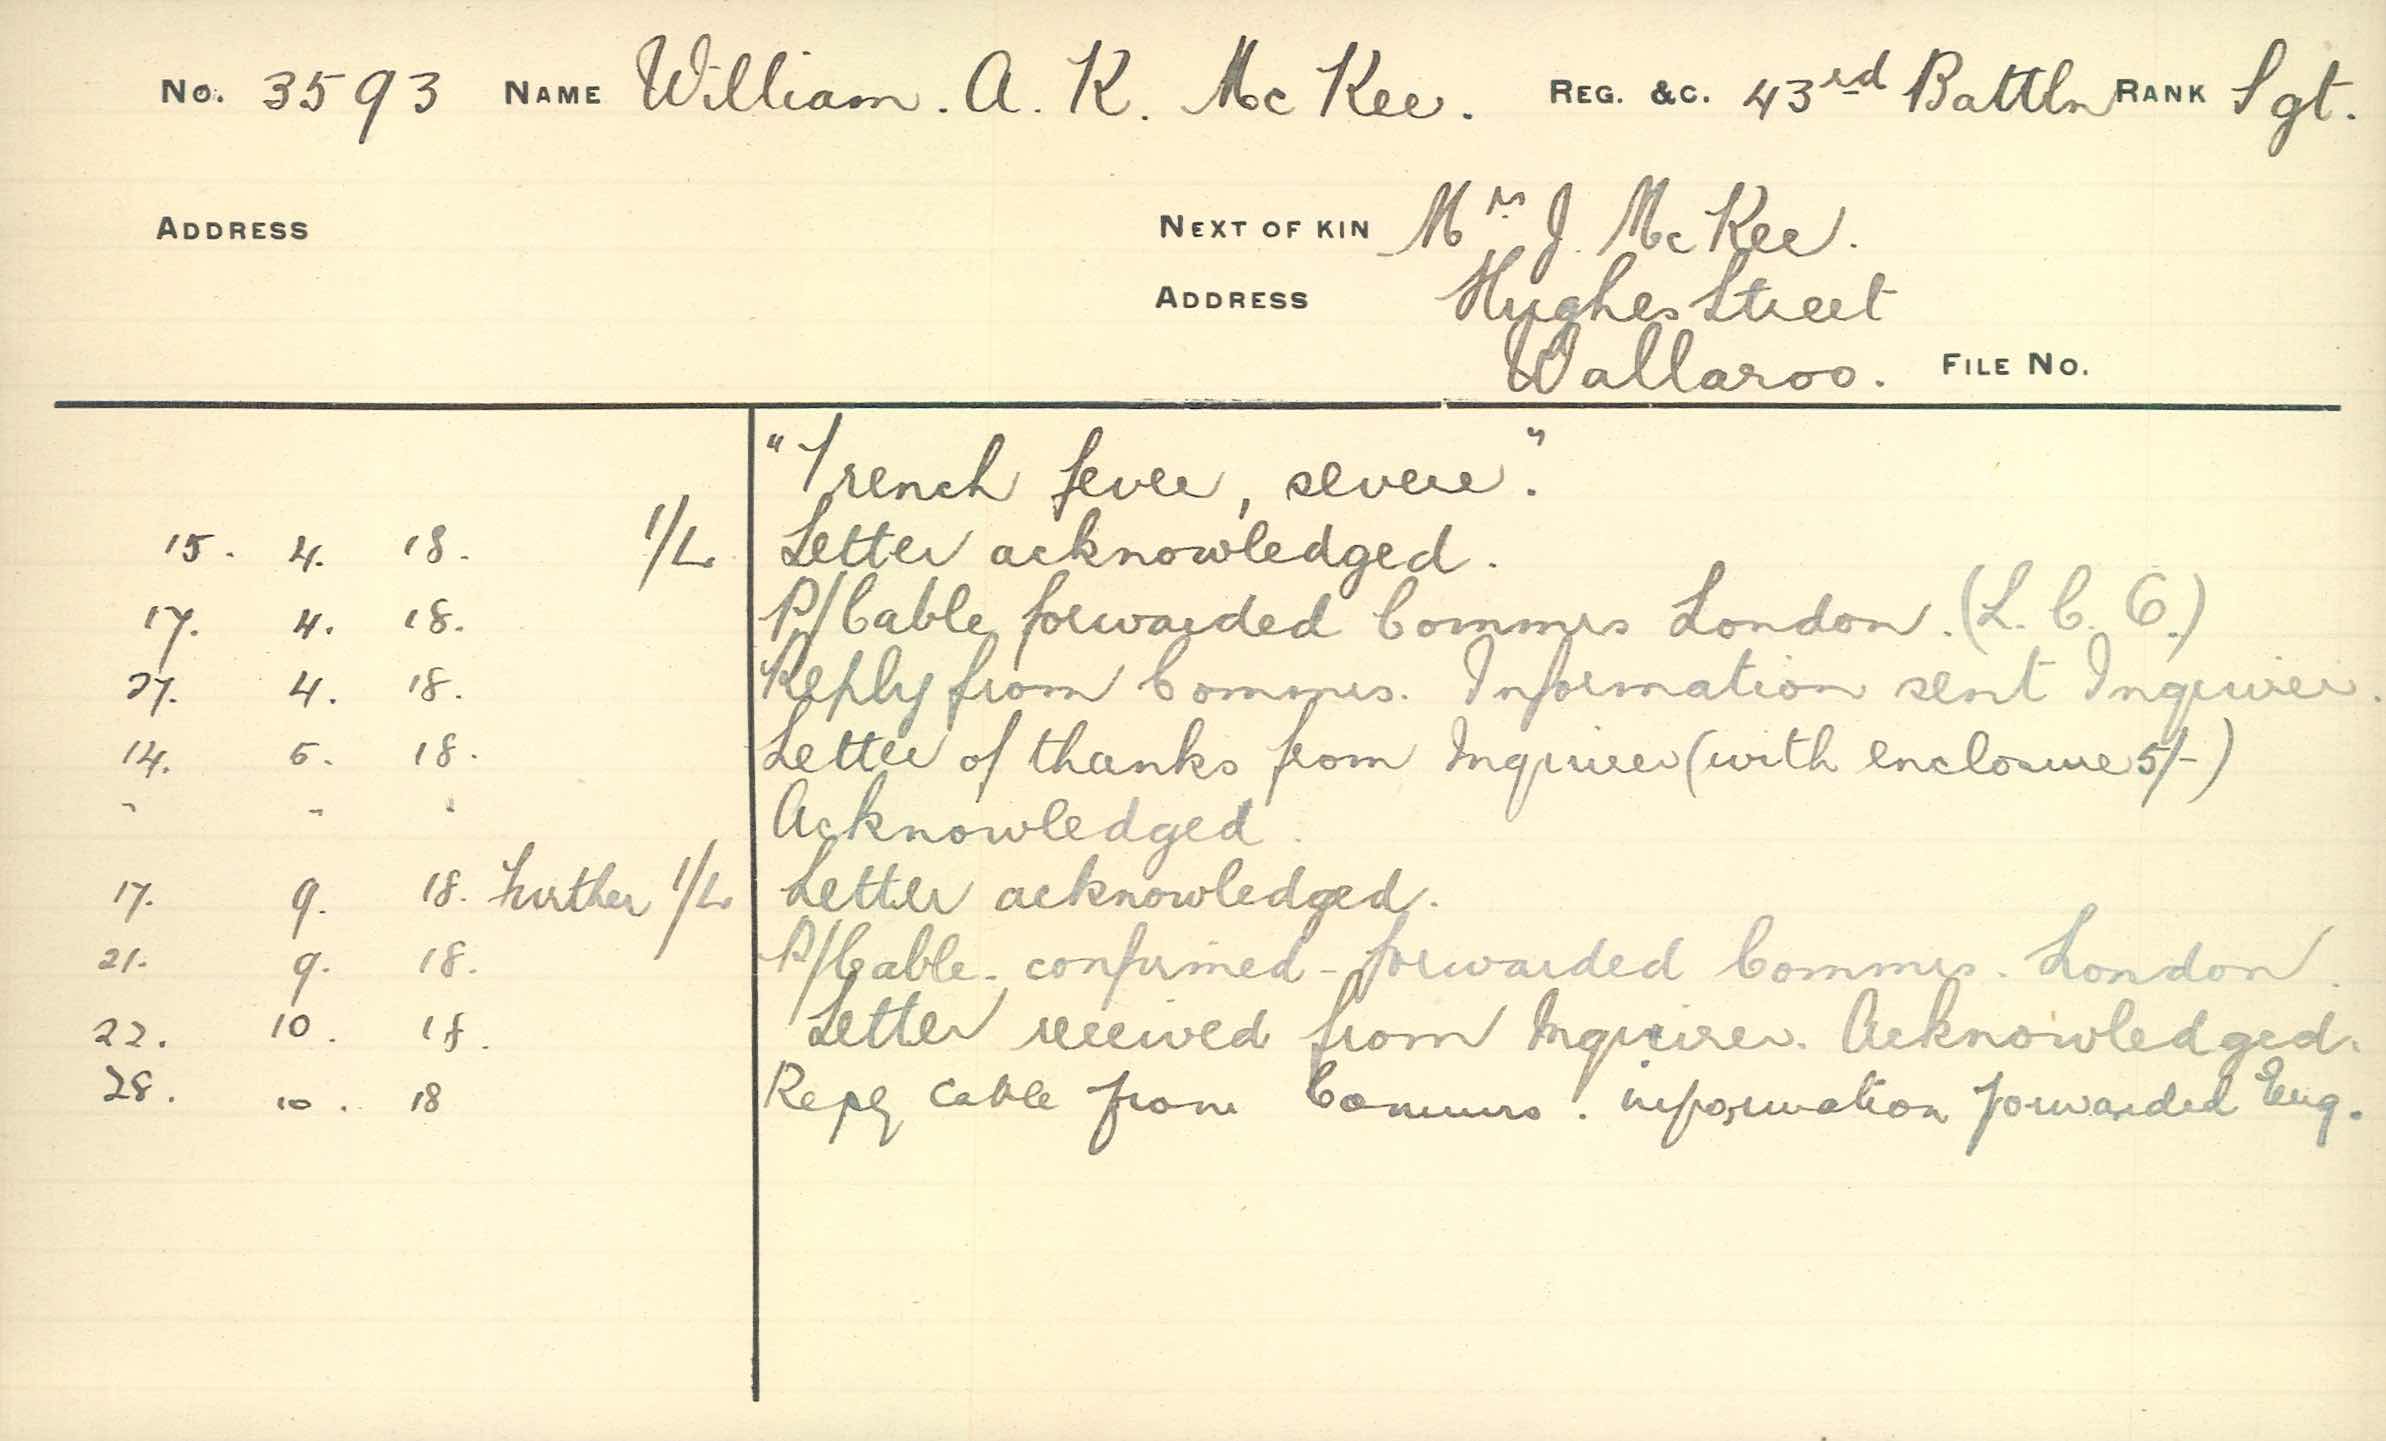 No. 3593 NAME William. A. K. McKee. REG. &C. 43rd Battln RANK Sgt.
ADDRESS NEXT OF KIN Mrs J. McKee.
ADDRESS Hughes Street
Wallaroo. FILE No.
"Trench fever, severe."
15. 4. 18. 1/L Letter acknowledged.
17. 4. 18. P/Cable forwarded Commrs London. (L. C. O.)
27. 4. 18. Reply from Commrs. Information sent Inquirer.
14. 5. 18. Letter of thanks from Inquirer (with enclosure 5/-)
" " " Acknowledged.
17. 9. 18. Further 1/L Letter acknowledged.
21. 9. 18. P/Cable - confirmed - forwarded Commrs. London.
22. 10. 18. Letter received from Inquirer. Acknowledged.
28. 10. 18 Reply cable from Commrs. information forwarded Enq.